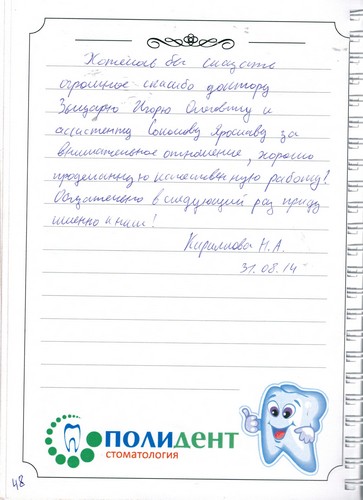 Хотелось бы сказать
огромное спасибо доктору
Зындарю Игорю Олеговичу и
ассистенту Соколову Ярославу за
внимательное отношение, хорошо
проделанную качественную работу!
Обязательно в следующий раз приду
именно к нам!
Кириллова Н.А.
31.08.14
ПОЛИДЕНТ
СТОМАТОЛОГИЯ
48